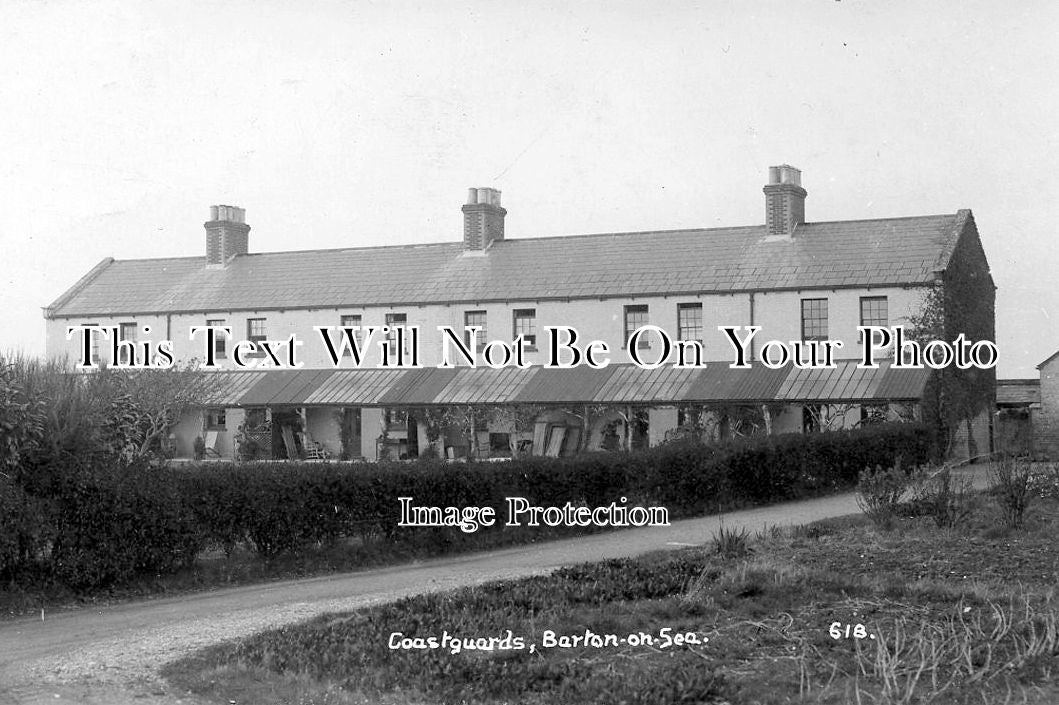 This Text Will Not Be On Your Photo
Image Protection
Coastguards, Barton-on-Sea. 618.